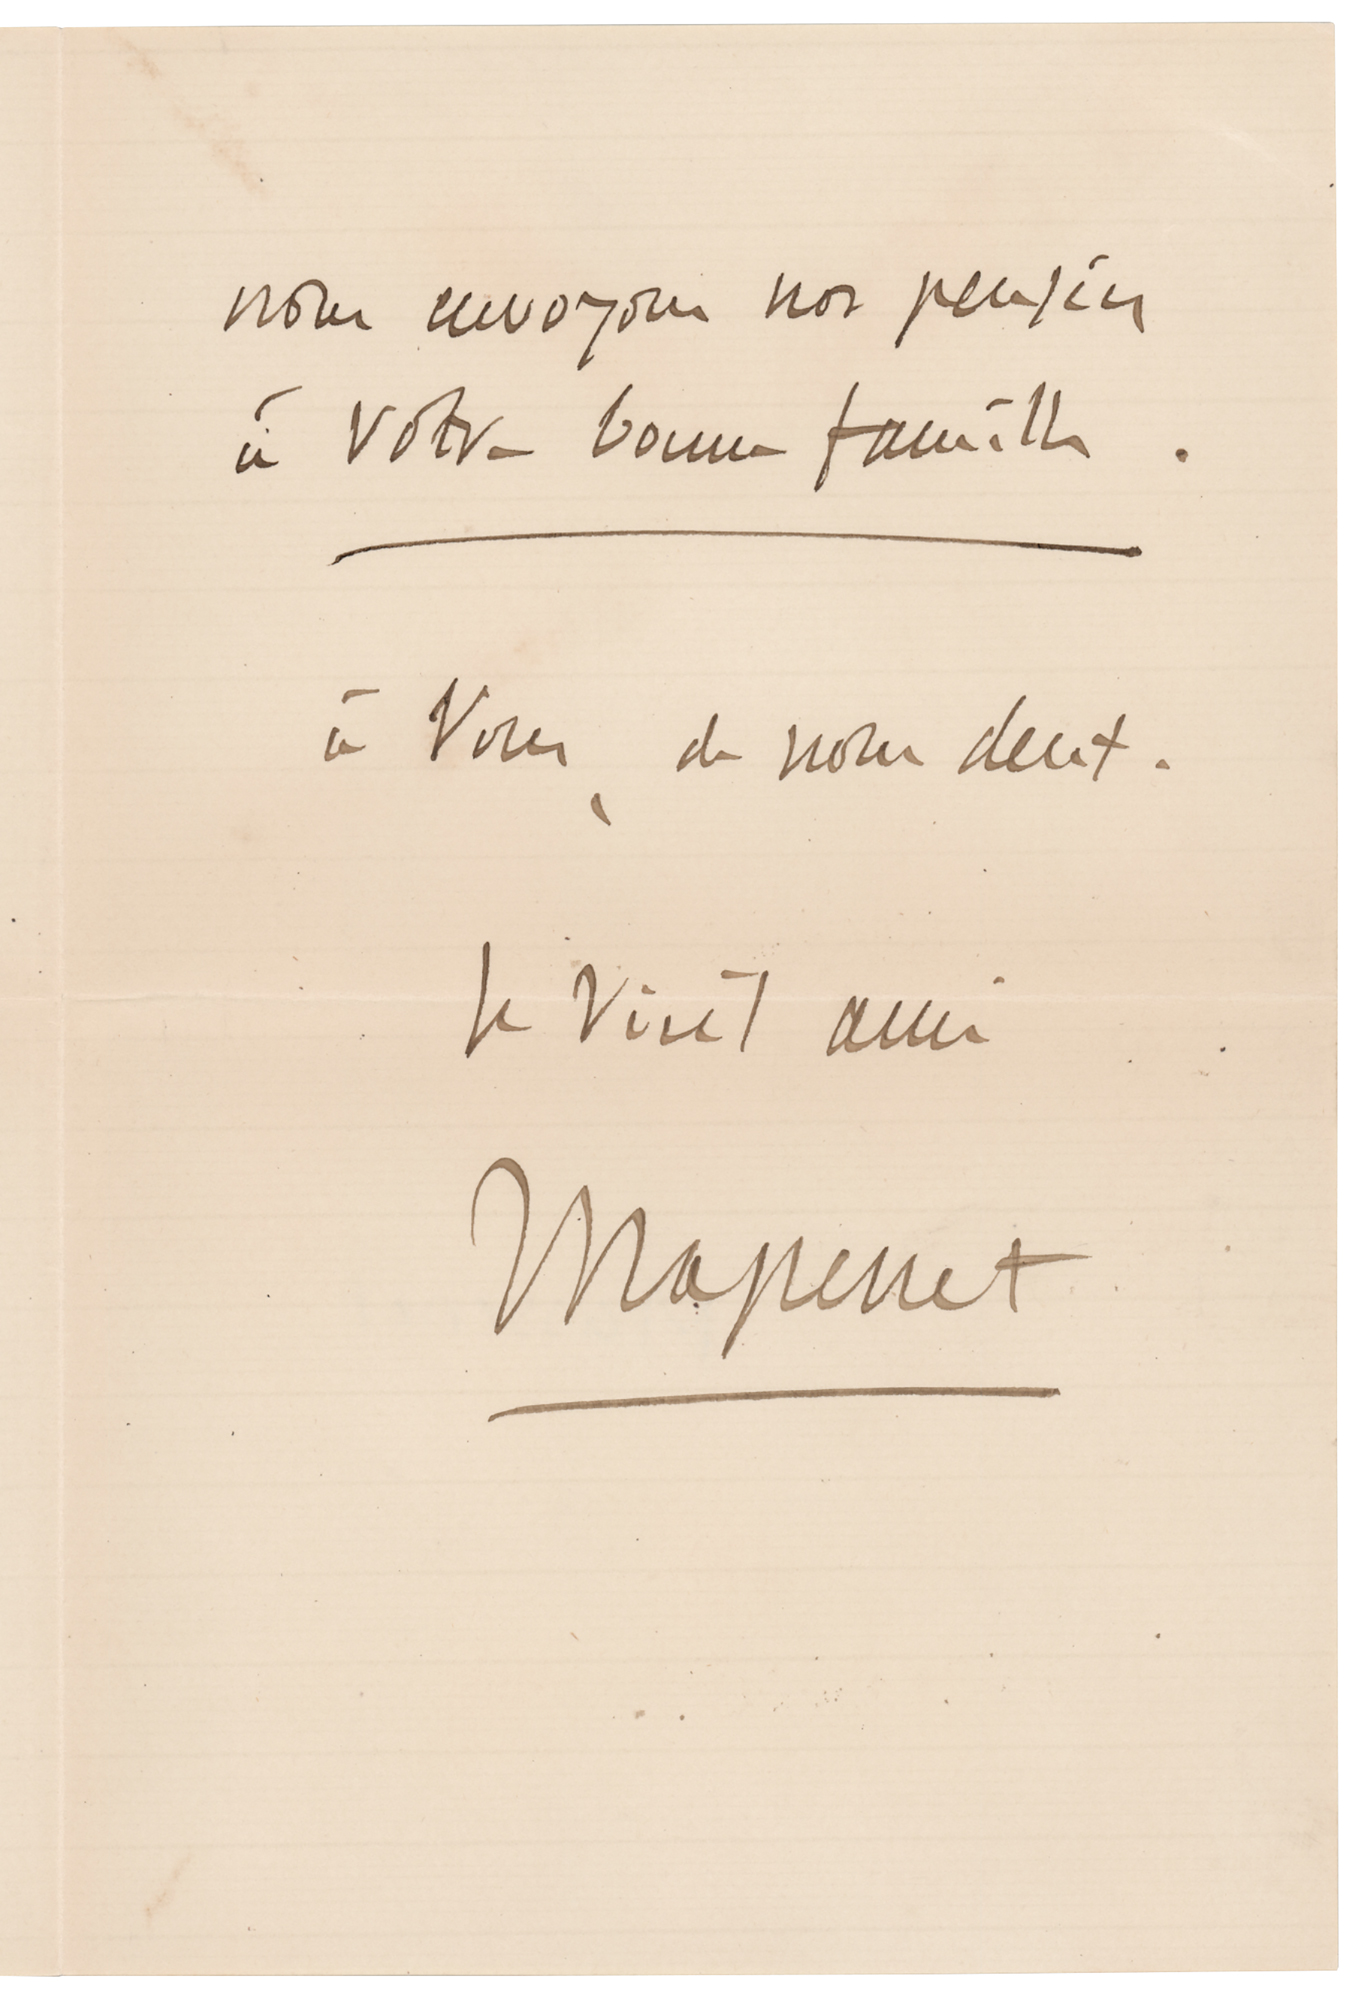 nous envoyons nos pensées
à votre bonne famille .
à Vous, de nous deux.
le vieil ami
Massenet